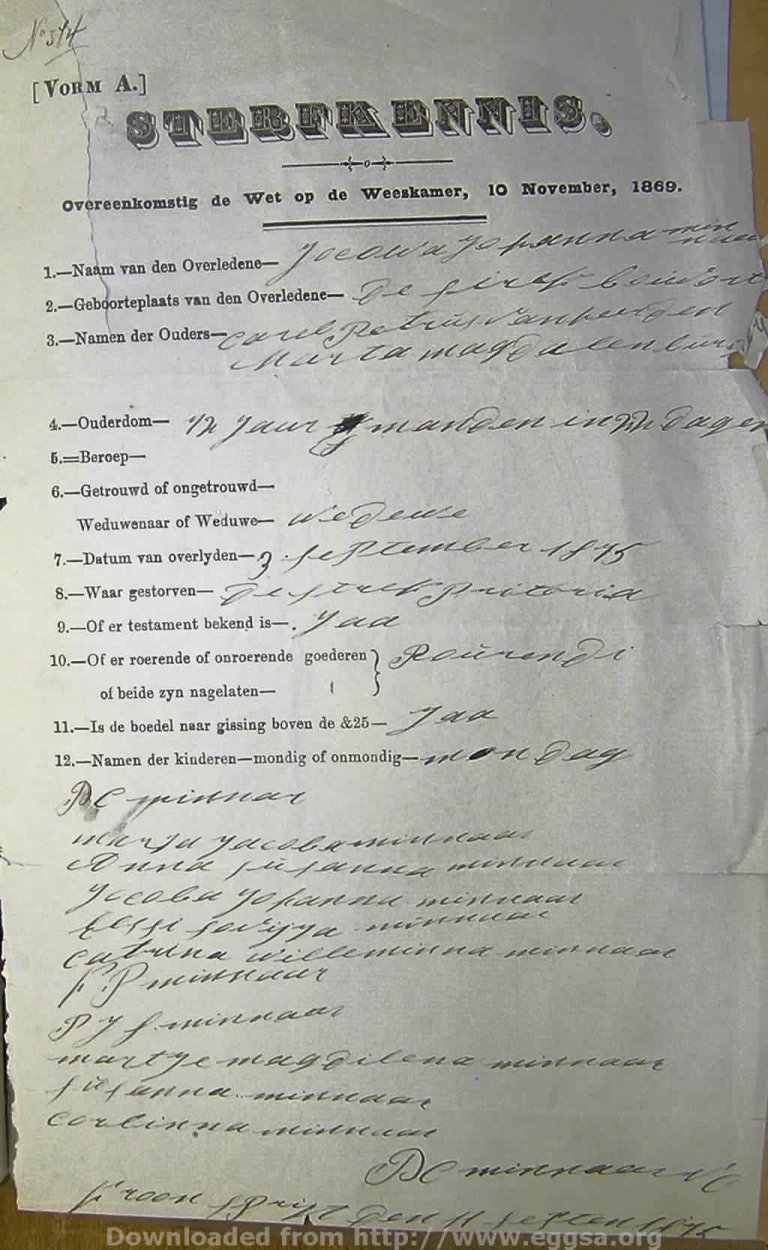 No 514
[VORM A.]
STERFKENNIS.
Overeenkomstig de Wet op de Weeskamer, 10 November, 1869.
1.—Naam van den Overledene— Jocoba Johanna min naar
2.—Geboorteplaats van den Overledene— De
3.—Namen der Ouders— Carel Petrus van
Marta magdalen
4.—Ouderdom— 42 Jaar manden in dagen
5.=Beroep—
6.—Getrouwd of ongetrouwd—
Weduwenaar of Weduwe— wedeuse
7.—Datum van overlyden— 3 September 1875
8.—Waar gestorven— De strek pritoria
9.—Of er testament bekend is—. Jaa
10.—Of er roerende of onroerende goederen } Rourendi
of beide zyn nagelaten—
11.—Is de boedel naar gissing boven de &25— Jaa
12.—Namen der kinderen—mondig of onmondig— mondag
P C minnar
maria Jacoba minnaar
Anna susanna minnaar
Jocoba Johanna minnaar
minnaar
catrina willeminna minnaar
minnaar
P J S minnaar
martje magdilena minnaar
susanna minnaar
corlinna minnaar
P C minnaar
den 11 septen 1875
Downloaded from http://www.eggsa.org